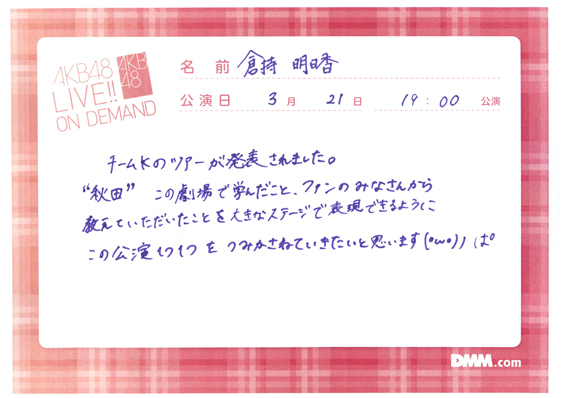 AKB48
LIVE!!
ON DEMAND
AKB
48
名前 倉持 明日香
公演日 3月 21日 19:00 公演
チームKのツアーが発表されました。
“秋田” この劇場で学んだこと、ファンのみなさんから
教えていただいたことを大きなステージで表現できるように
この公演1つ1つをつみかさねていきたいと思います(・ω・)ノ ぱ
DMM.com